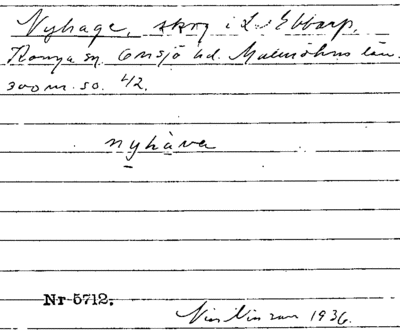 Nyhage, skog i L. Ebbarp,
Konga sn. Onsjö hd. Malmöhus län.
300 m. so. 42.
nyhava
Nr 5712.
1936.